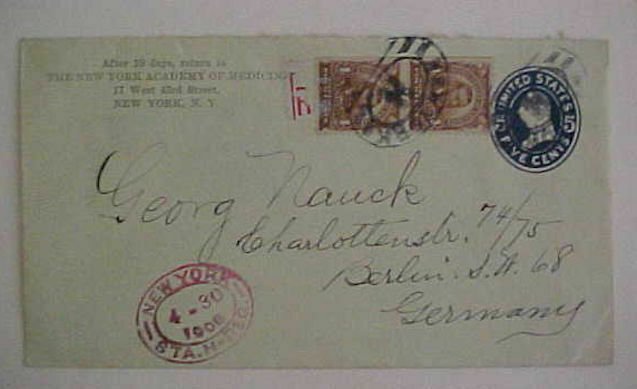 After 10 days, return to
THE NEW YORK ACADEMY OF MEDICINE
17 West 43rd Street,
NEW YORK, N. Y.
UNITED STATES
5
FIVE CENTS
Georg Nauck
Charlottenstr. 74/75
Berlin. S.W. 68
Germany
NEW YORK
4-30
1906
STA. H-REG